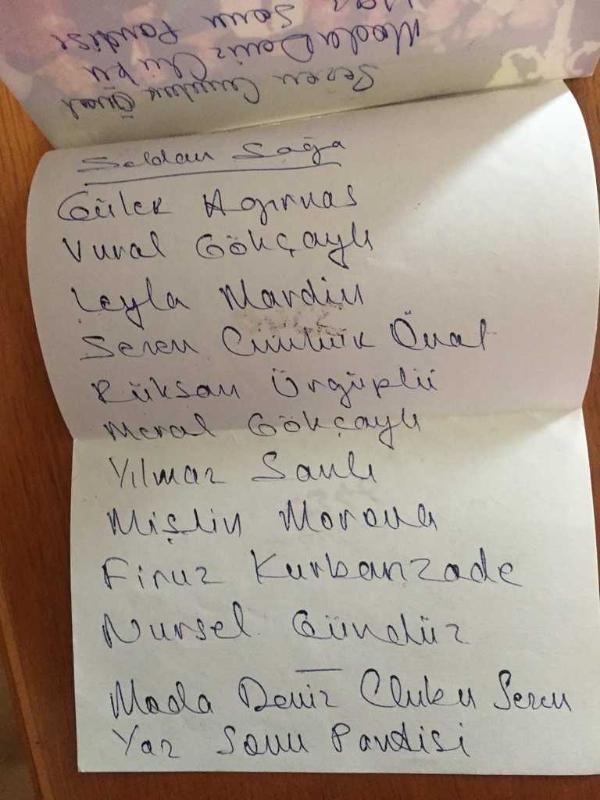 Seren Cümbük Önat
Moda Deniz Clubu
Yaz Sonu Pandisi
Soldan Sağa
Gülek Agırnas
Vural Gökçaylı
Leyla Mardin
Seren Cümbük Önat
Rüksan Ürgüplü
Meral Gökçaylı
Yılmaz Sanlı
Mişlin Morona
Firuz Kurbanzade
Nursel Gündüz
Moda Deniz Clubu Seren
Yaz Sonu Pandisi